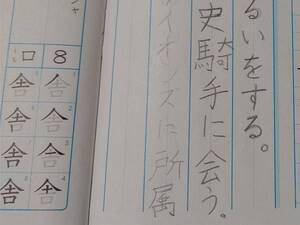 るいをする。
史騎手に会う。
イオンズに所属
シャ
8
舎
舎
舎
舎
口
舎
舎
舎
舎